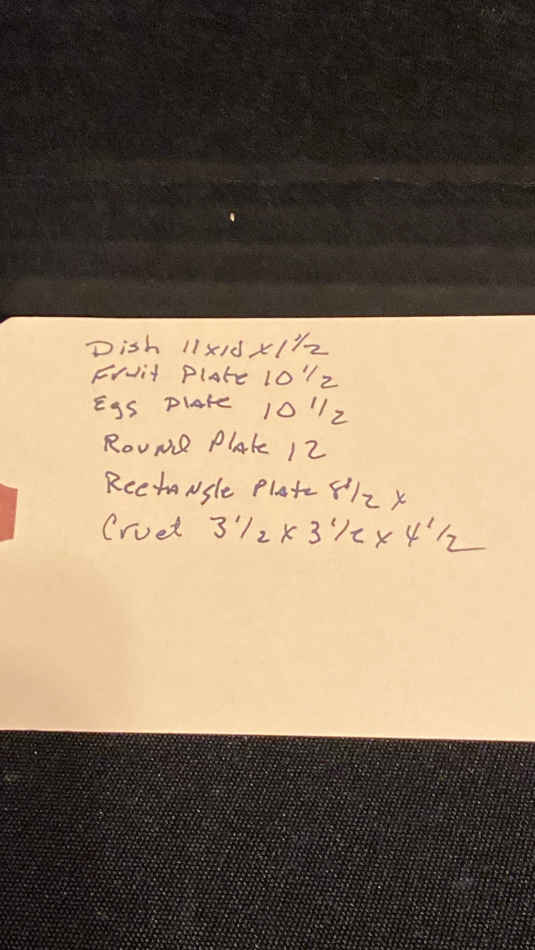 Dish 11x10 x 1 1/2
Fruit Plate 10 1/2
Egg Plate 10 1/2
Round Plate 12
Rectangle Plate 8 1/2 x
Cruet 3 1/2 x 3 1/2 x 4 1/2